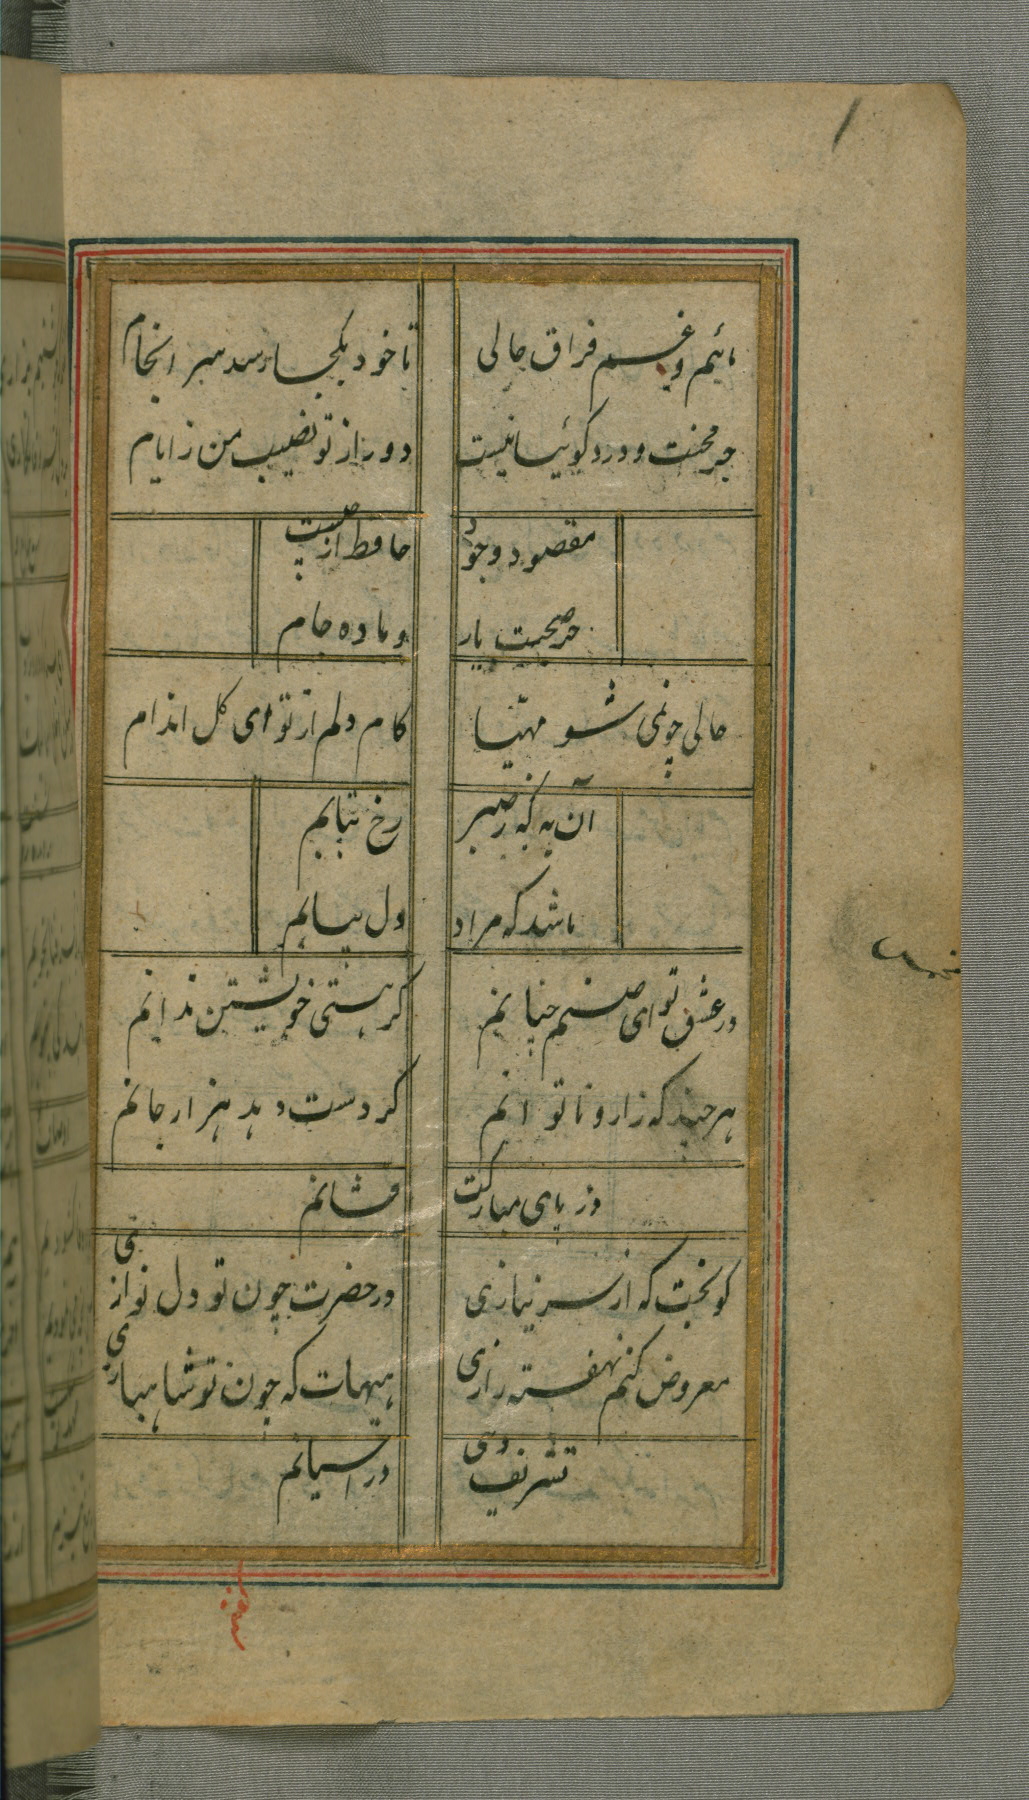 مائیم و غم فراق حالی
تا خود بکجا رسد سر انجام
جز محنت و درد گوئیا نیست
دور از تو نصیب من ز ایام
مقصود وجود
حافظ از چیست
جز صحبت یار
و باده جام
حالی چو نمی شو مهیّا
کام دلم از تو ای گل اندام
آن به که ز صبر
رخ نتابیم
باشد که مراد
دل بیابیم
در عشق تو ای صنم چنانم
کز هستی خویشتن ندانم
هر چند که زار و ناتوانم
گر دست دهد هزار جانم
در پای مبارکت
فشانم
کو بخت که از سر نیازی
در حضرت چون تو دل نوازی
معروض کنم نهفته رازی
هیهات که چون تو شاهبازی
تشریف دهی
در آشیانم